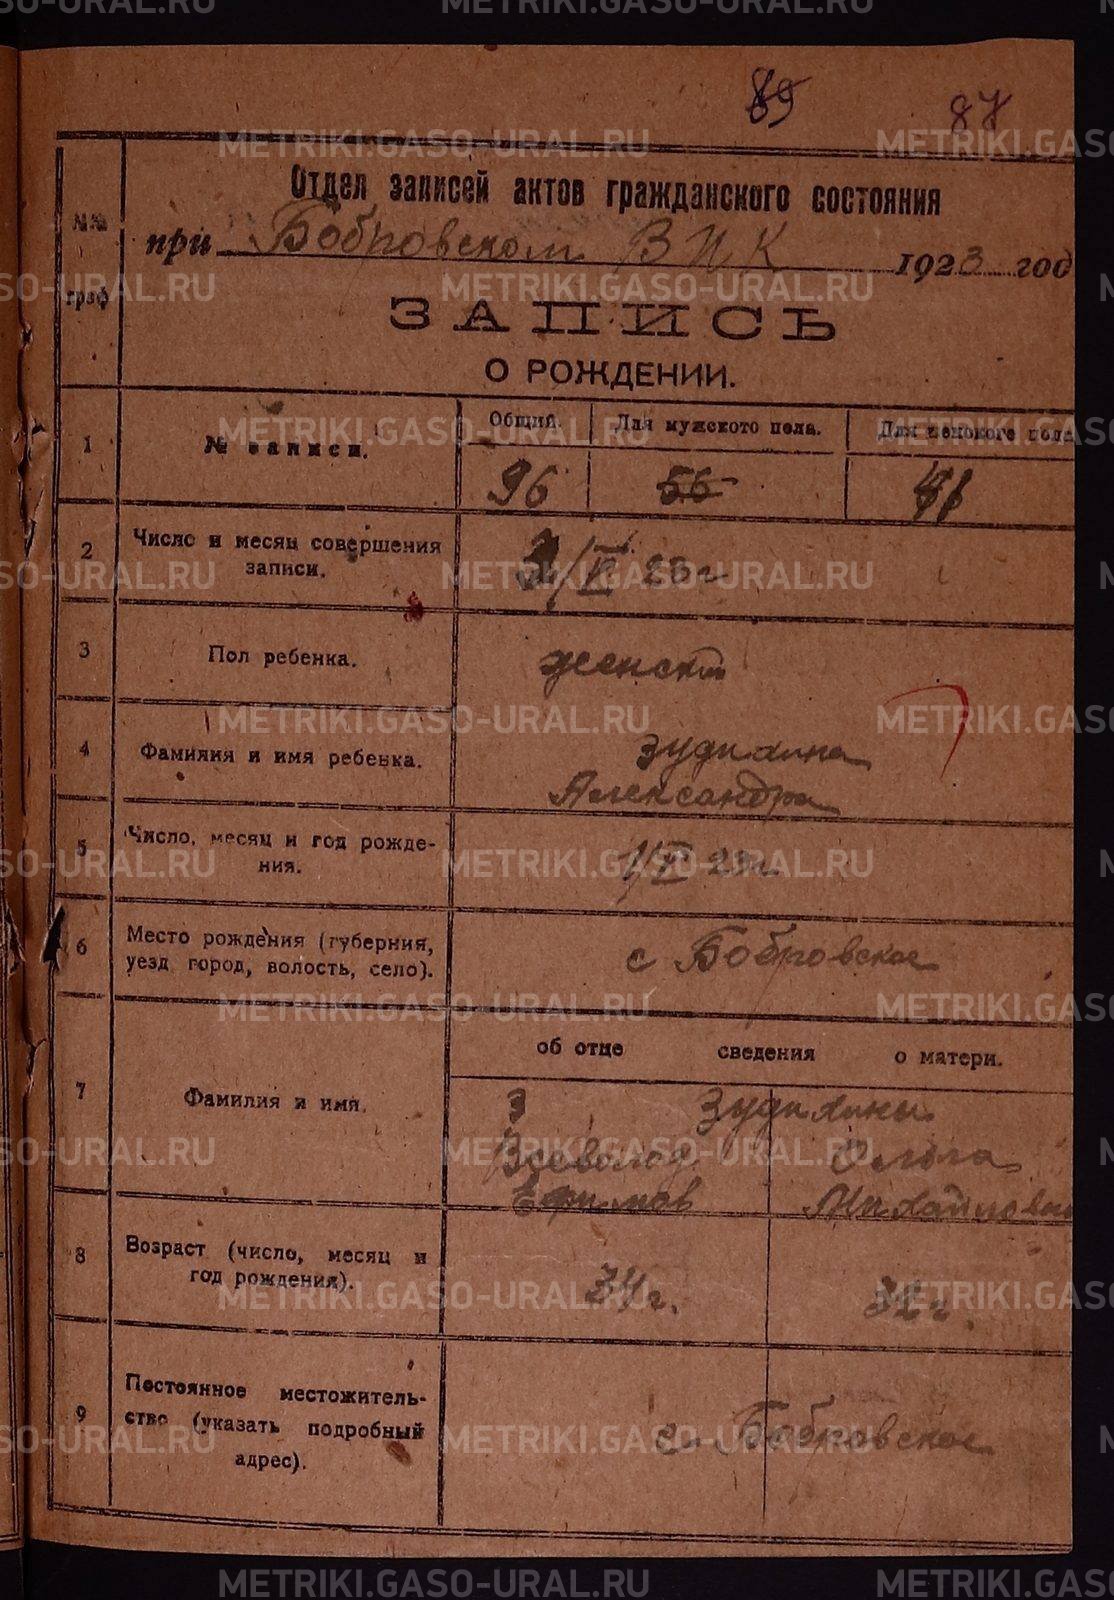 89
87
Отдел записей актов гражданского состояния
№№ граф
при Бобровском ВИК 1923 год
ЗАПИСЬ
О РОЖДЕНИИ.
1
№ записи.
Общий.
Для мужского пола.
Для женского пола
96
56
41
2
Число и месяц совершения
записи.
23 г
3
Пол ребенка.
женский
4
Фамилия и имя ребенка.
Зудихина
Александра
5
Число, месяц и год рожде-
ния.
1/V 23 г
6
Место рождения (губерния,
уезд город, волость, село).
с Бобровское
7
Фамилия и имя.
об отце сведения о матери.
З Зудихины
Всеволод Ольга
Ефимов Михайловна
8
Возраст (число, месяц и
год рождения).
34 г.
32 г.
9
Постоянное местожитель-
ство (указать подробный
адрес).
с. Бобровское
METRIKI.GASO-URAL.RU